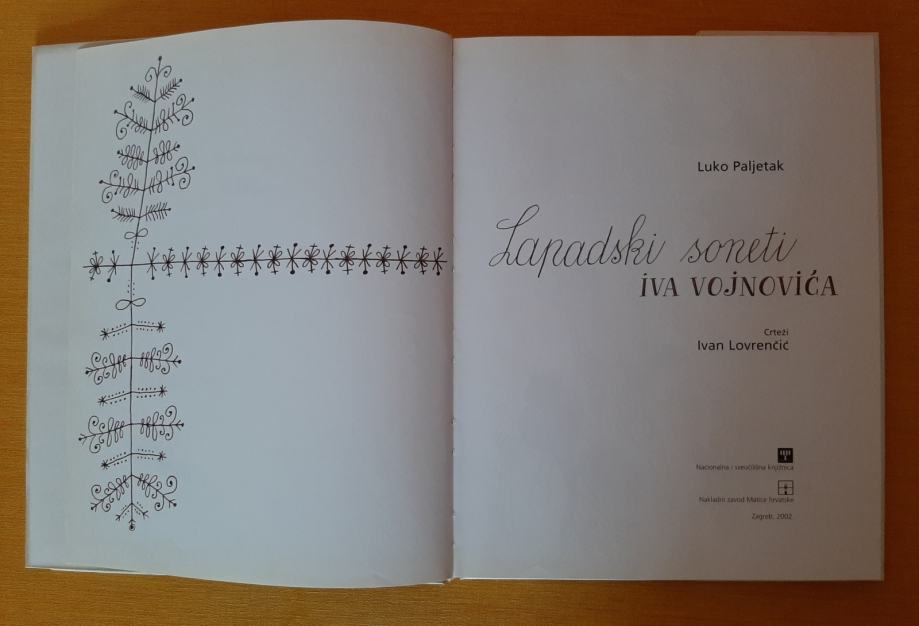 Luko Paljetak
Lapadski soneti
IVA VOJNOVIĆA
Crteži
Ivan Lovrenčić
Nacionalna i sveučilišna knjižnica
Nakladni zavod Matice hrvatske
Zagreb, 2002.